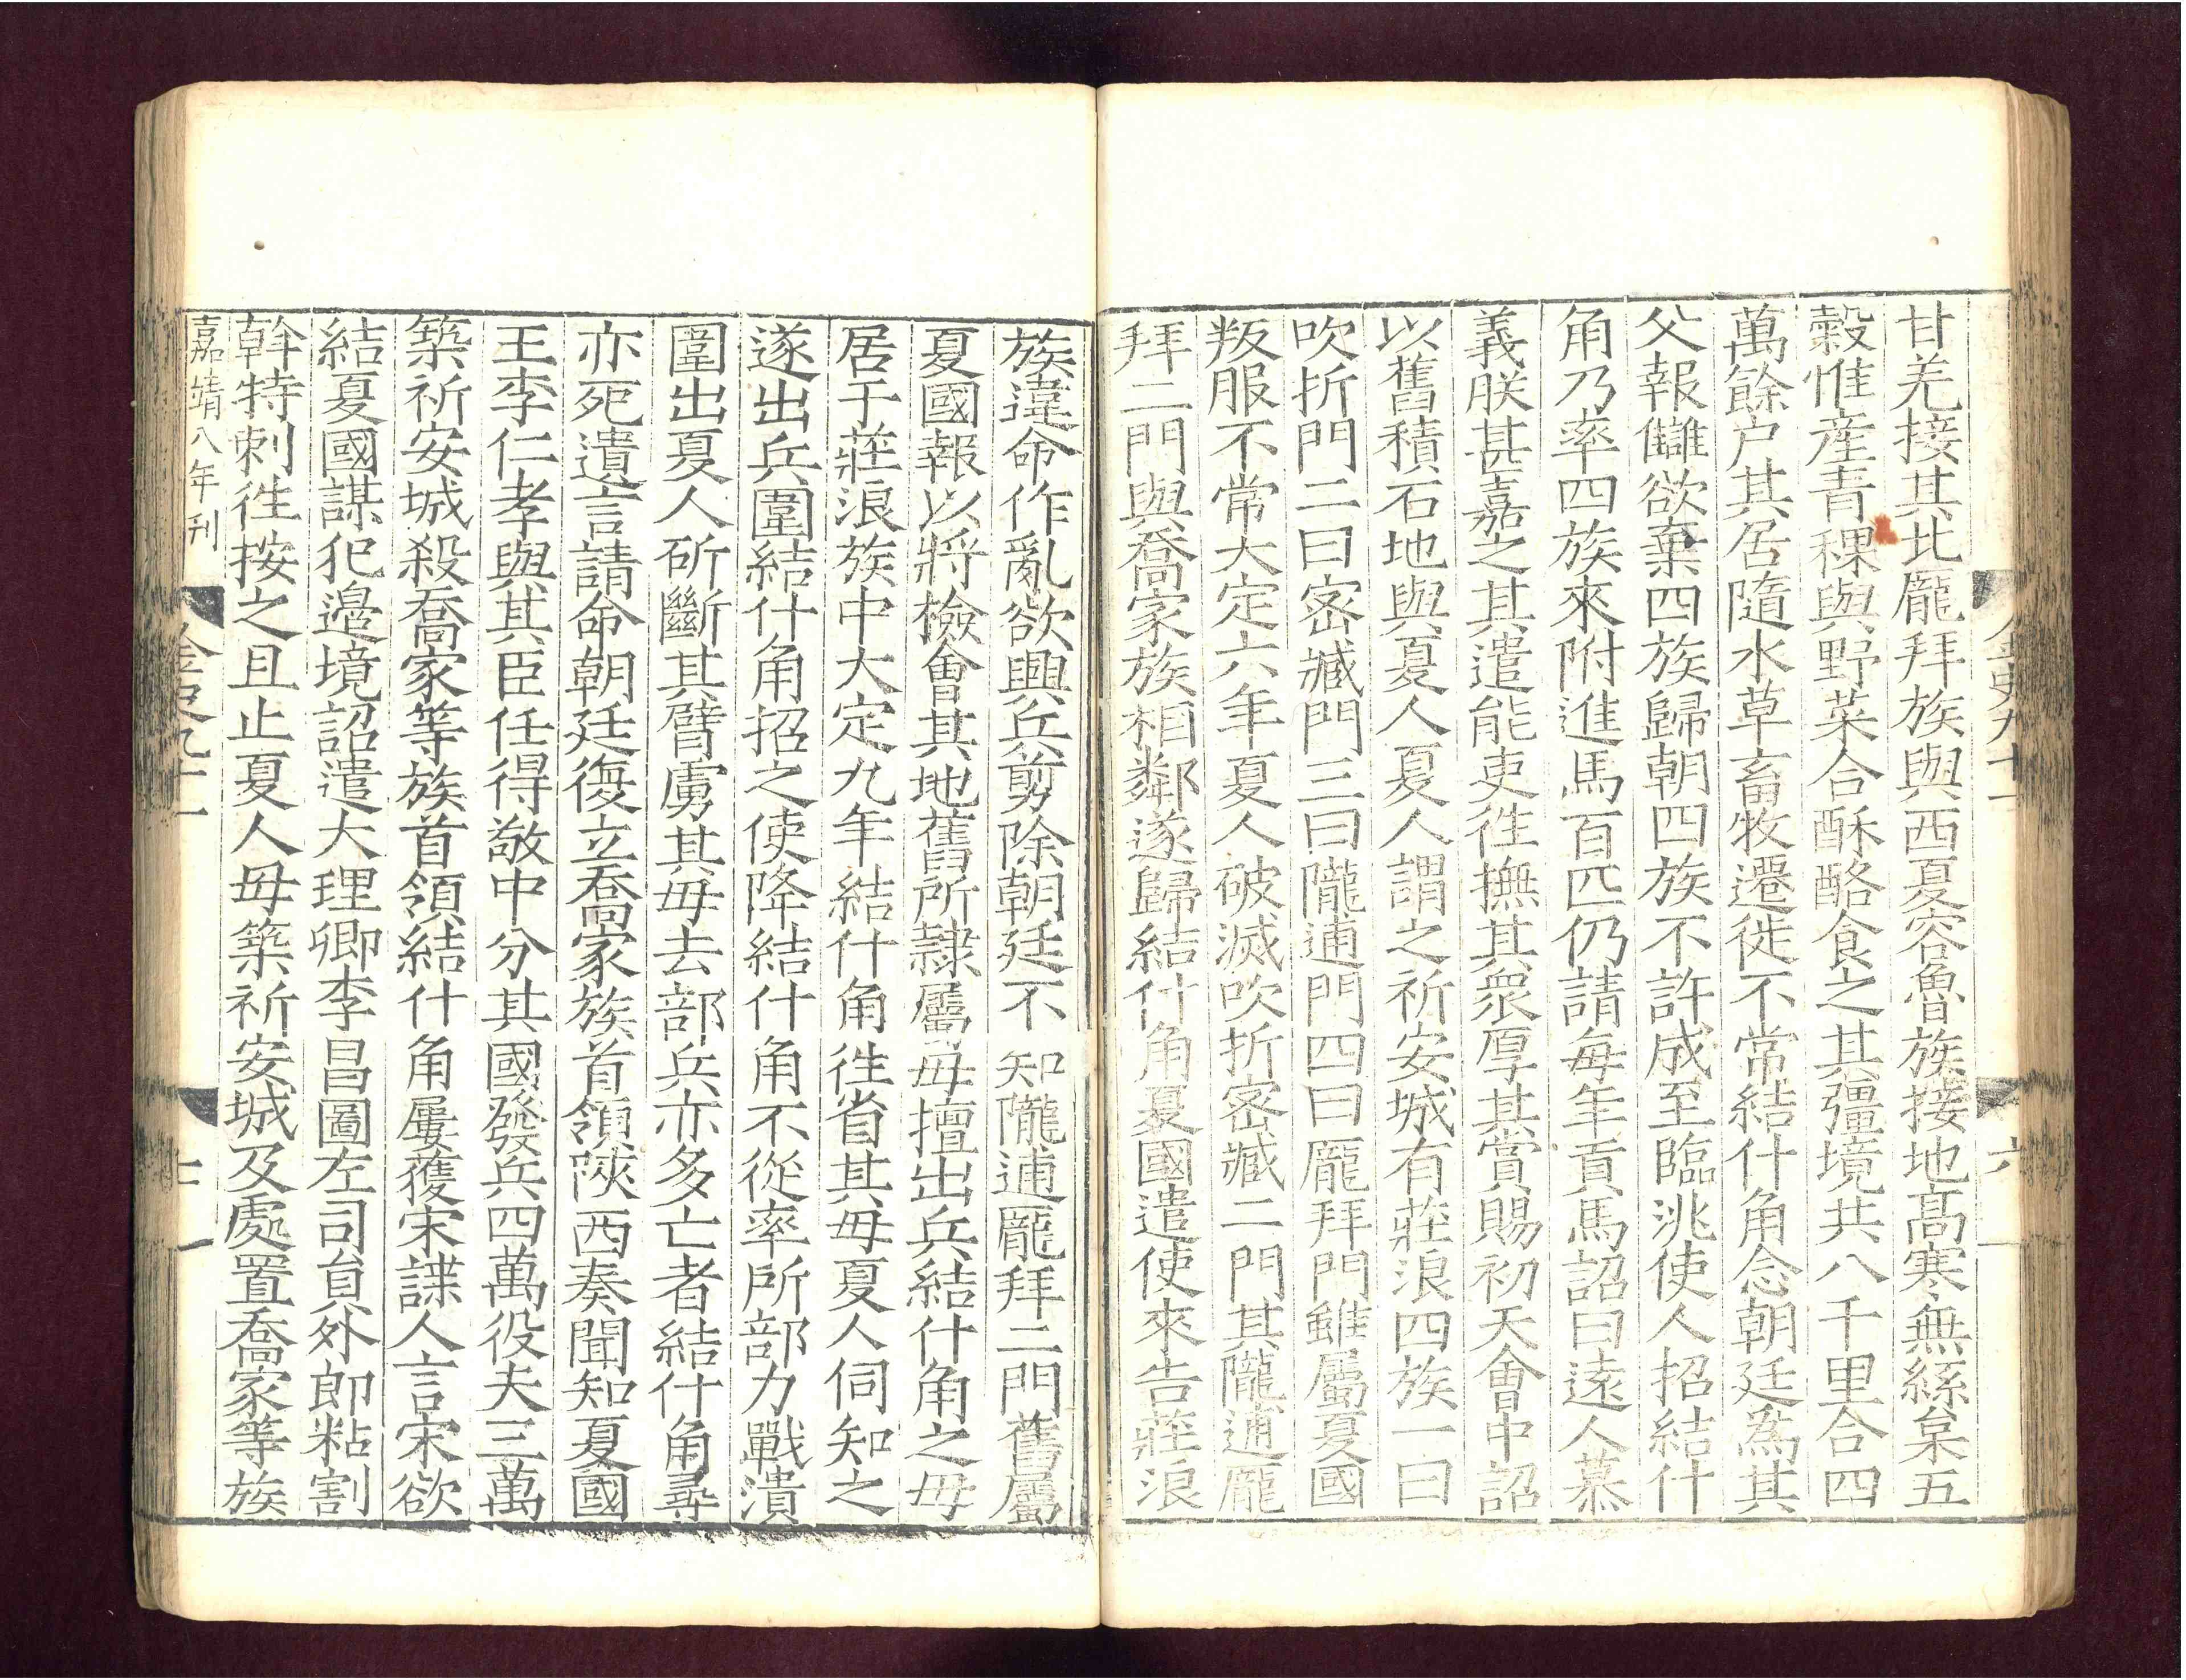 金史九十一
六
甘羌接其北龐拜族與西夏容魯族接地高寒無絲枲五
穀惟産青稞與野菜合酥酪食之其彊境共八千里合四
萬餘户其居隨水草畜牧遷徙不常結什角念朝廷爲其
父報讎欲棄四族歸朝四族不許成至臨洮使人招結什
角乃率四族來附進馬百匹仍請每年貢馬詔曰遠人慕
義朕甚嘉之其遣能吏徃撫其衆厚其賞賜初天會中詔
以舊積石地與夏人夏人謂之祈安城有莊浪四族一曰
吹折門二曰密臧門三曰隴逋門四曰龐拜門雖屬夏國
叛服不常大定六年夏人破滅吹折密臧二門其隴逋龐
拜二門與喬家族相鄰遂歸結什角夏國遣使來告莊浪
族違命作亂欲興兵剪除朝廷不知隴逋龐拜二門舊屬
夏國報以將檢會其地舊所隸屬毋擅出兵結什角之母
居于莊浪族中大定九年結什角徃省其母夏人伺知之
遂出兵圍結什角招之使降結什角不從率所部力戰潰
圍出夏人斫斷其臂虜其母去部兵亦多亡者結什角尋
亦死遺言請命朝廷復立喬家族首領陝西奏聞知夏國
王李仁孝與其臣任得敬中分其國發兵四萬役夫三萬
築祈安城殺喬家等族首領結什角屢獲宋諜人言宋欲
結夏國謀犯邊境詔遣大理卿李昌圖左司員外郎粘割
幹特剌徃按之且止夏人毋築祈安城及處置喬家等族
嘉靖八年刊
金史九十一
七